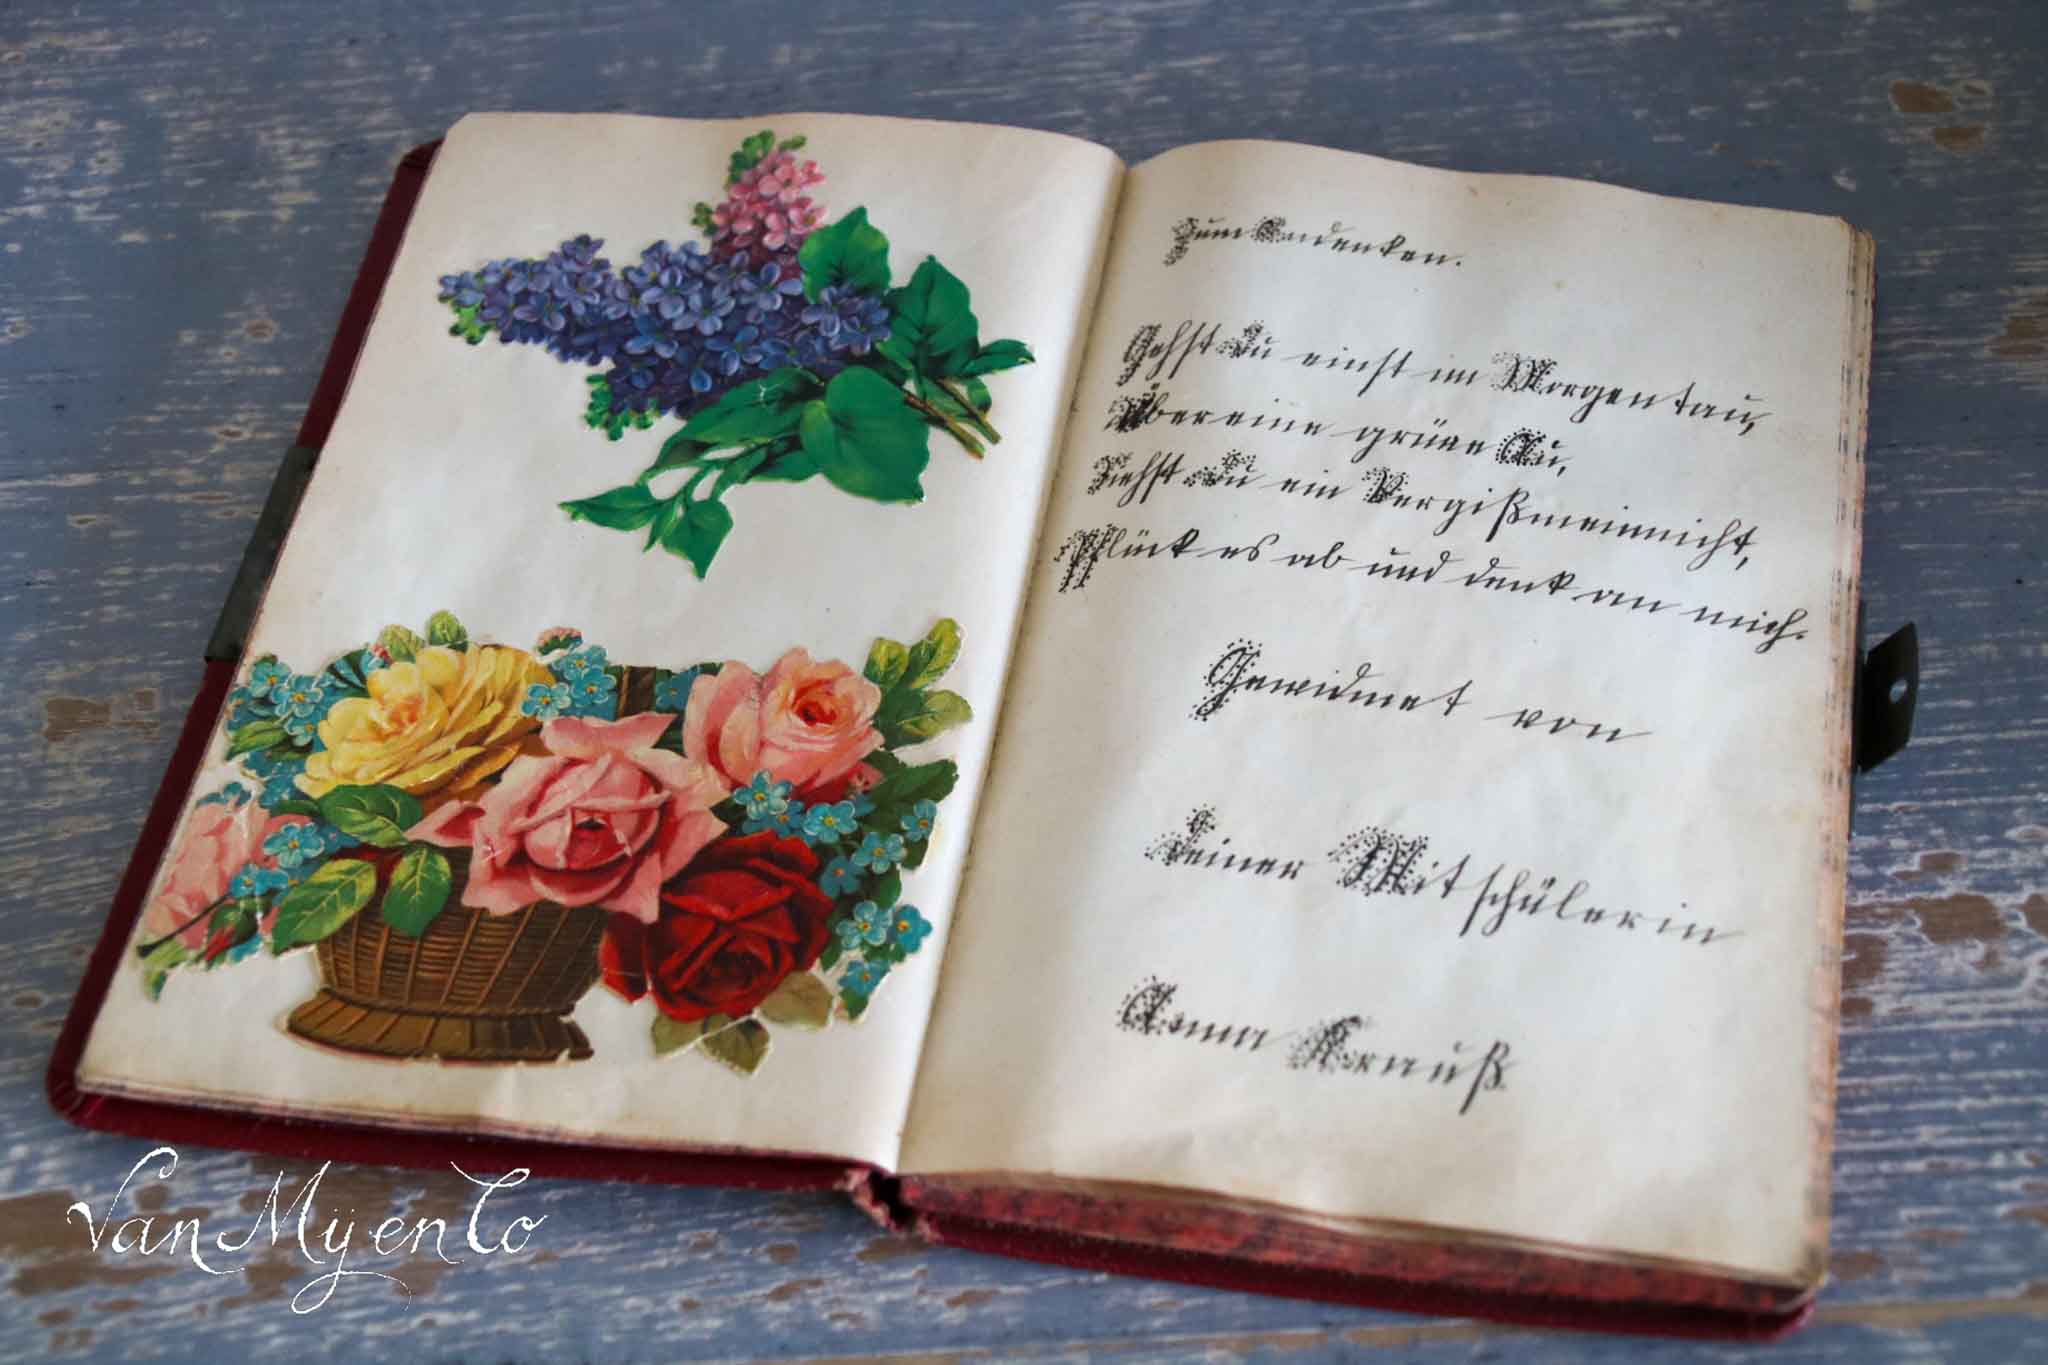 Zum Andenken.
Gehst Du einst im Morgentau,
Über eine grüne Au,
Siehst Du ein Vergißmeinnicht,
Pflück es ab und denk an mich.
Gewidmet von
Deiner Mitschülerin
Anna Krauß
Van Myen Co